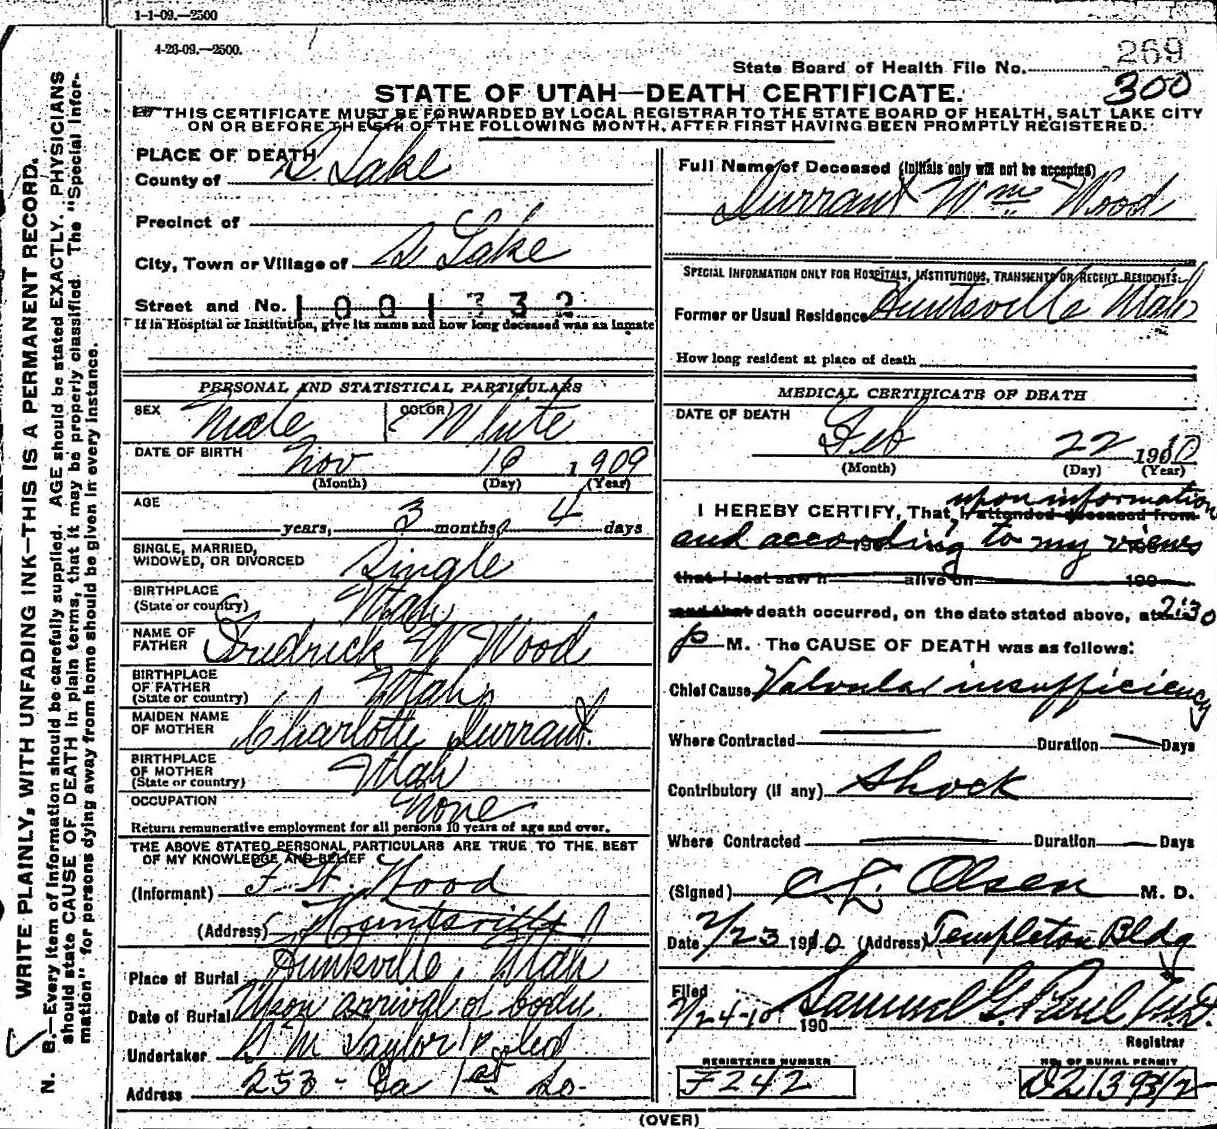 1-1-09.—2500
4-26-09.—2500.
269
State Board of Health File No.
300
STATE OF UTAH—DEATH CERTIFICATE.
THIS CERTIFICATE MUST BE FORWARDED BY LOCAL REGISTRAR TO THE STATE BOARD OF HEALTH, SALT LAKE CITY
ON OR BEFORE THE 5TH OF THE FOLLOWING MONTH, AFTER FIRST HAVING BEEN PROMPTLY REGISTERED.
WRITE PLAINLY, WITH UNFADING INK—THIS IS A PERMANENT RECORD.
N. B.—Every item of information should be carefully supplied. AGE should be stated EXACTLY. PHYSICIANS
should state CAUSE OF DEATH in plain terms, that it may be properly classified. The "Special Infor-
mation" for persons dying away from home should be given in every instance.
PLACE OF DEATH
County of S Lake
Precinct of
City, Town or Village of S Lake
Street and No. 1001332
If in Hospital or Institution, give its name and how long deceased was an inmate
PERSONAL AND STATISTICAL PARTICULARS
SEX Male COLOR White
DATE OF BIRTH Nov 18 1909
(Month) (Day) (Year)
AGE
years, 3 months, 4 days
SINGLE, MARRIED,
WIDOWED, OR DIVORCED Single
BIRTHPLACE
(State or country) Utah
NAME OF
FATHER Fredrick W Wood
BIRTHPLACE
OF FATHER
(State or country) Utah
MAIDEN NAME
OF MOTHER Charlotte Durrant
BIRTHPLACE
OF MOTHER
(State or country) Utah
OCCUPATION None
Return remunerative employment for all persons 10 years of age and over.
THE ABOVE STATED PERSONAL PARTICULARS ARE TRUE TO THE BEST
OF MY KNOWLEDGE AND BELIEF
(Informant) F. W. Wood
(Address) Huntsville
Place of Burial Huntsville, Utah
Date of Burial Upon arrival of body
Undertaker S M Taylor
Address 253 - Ea 1st So-
Full Name of Deceased (Initials only will not be accepted)
Durrant Wm Wood
SPECIAL INFORMATION ONLY FOR HOSPITALS, INSTITUTIONS, TRANSIENTS OR RECENT RESIDENTS.
Former or Usual Residence Huntsville Utah
How long resident at place of death
MEDICAL CERTIFICATE OF DEATH
DATE OF DEATH
Feb 22 1910
(Month) (Day) (Year)
upon information
I HEREBY CERTIFY, That I attended deceased from
and according to my views
190 190
that I last saw h alive on 190
and that death occurred, on the date stated above, at 2:30
p M. The CAUSE OF DEATH was as follows:
Chief Cause Valvular insufficiency
Where Contracted Duration Days
Contributory (if any) Shock
Where Contracted Duration Days
(Signed) C L Olsen M. D.
Date 2/23 1910. (Address) Templeton Bldg
Filed
2/24-10 190 Samuel G. Paul M.D.
Registrar
REGISTERED NUMBER
F242
NO. OF BURIAL PERMIT
(OVER)